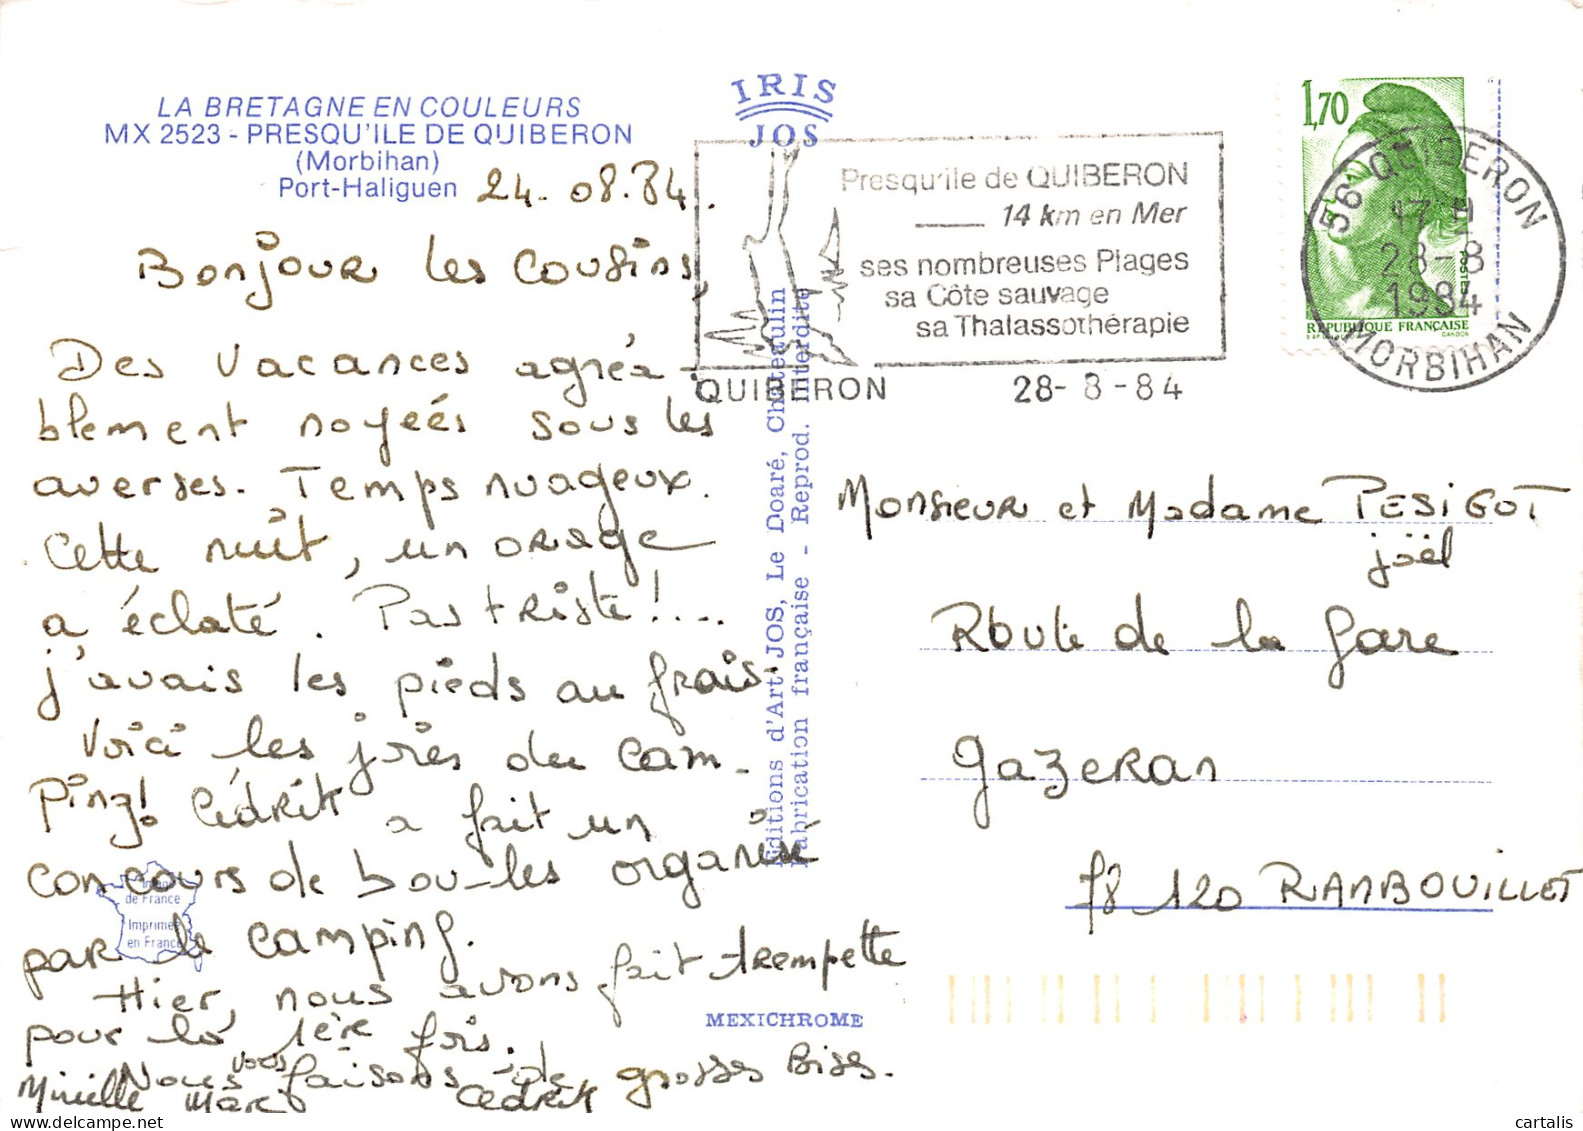 LA BRETAGNE EN COULEURS
MX 2523 - PRESQU'ILE DE QUIBERON
(Morbihan)
Port-Haliguen
24.08.84.
Bonjour les cousins,
Des vacances agréa-
blement noyées sous les
averses. Temps nuageux.
Cette nuit, un orage
a éclaté. Pas triste!...
j'avais les pieds au frais.
Voici les joies du cam-
ping! Cédrik a fait un
concours de bou-les organisé
par le camping.
Hier, nous avons fait trempette
pour la 1ère fois.
Nous vous faisons de grosses bises.
Mireille Marc Cédrik
Image
de France
Imprimé
en France
IRIS
JOS
Editions d'Art JOS, Le Doaré, Chateaulin
Fabrication française - Reprod. interdite
MEXICHROME
Presqu'ile de QUIBERON
14 km en Mer
ses nombreuses Plages
sa Côte sauvage
sa Thalassothérapie
QUIBERON 28-8-84
1,70
POSTES
REPUBLIQUE FRANÇAISE
GANDON
56 QUIBERON
17 H
28-8
1984
MORBIHAN
Monsieur et Madame PESIGOT
joël
Route de la gare
Gazeran
78 120 RAMBOUILLET
cartalis